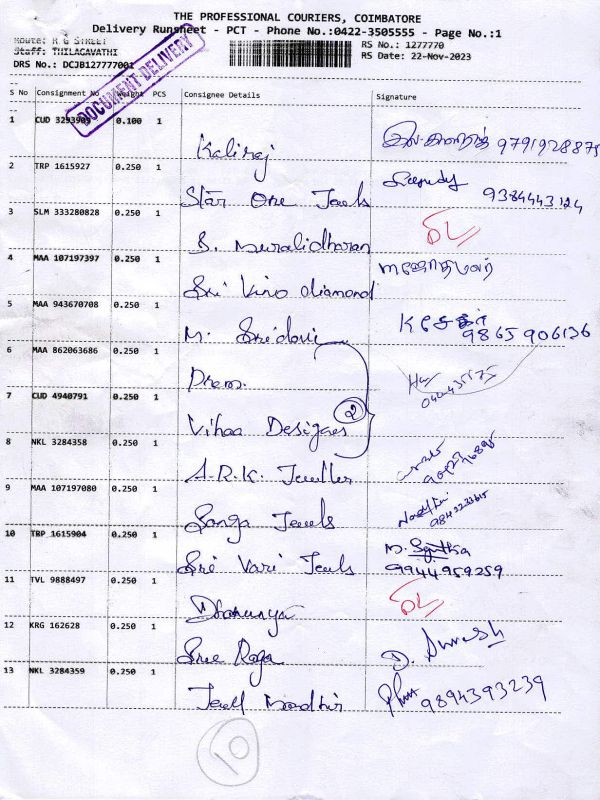 THE PROFESSIONAL COURIERS, COIMBATORE
Delivery Runsheet - PCT - Phone No.:0422-3505555 - Page No.:1
Route: R G STREET
Staff: THILAGAVATHI
DRS No.: DCJB127777001
RS No.: 1277770
RS Date: 22-Nov-2023
DOCUMENT DELIVERY
S No Consignment No Weight PCS Consignee Details Signature
1 CUD 3293909 0.100 1 Kaliraj 9791928879
2 TRP 1615927 0.250 1 Star One Jewels 9384443124
3 SLM 333280828 0.250 1 B. Muralidharan
4 MAA 107197397 0.250 1 Sri Vino diamond
5 MAA 943670708 0.250 1 M. Sridevi 9865906136
6 MAA 862063686 0.250 1 Prem
7 CUD 4940791 0.250 1 Vihaa Designes 2
8 NKL 3284358 0.250 1 A.R.K. Jewellers
9 MAA 107197080 0.250 1 Ganga Jewels
10 TRP 1615904 0.250 1 Sri Vari Jewels 9944959259
11 TVL 9888497 0.250 1 Dhanunya
12 KRG 162628 0.250 1 Sree Raga D. Suresh
13 NKL 3284359 0.250 1 Jewel Mandhir 9894393239
10